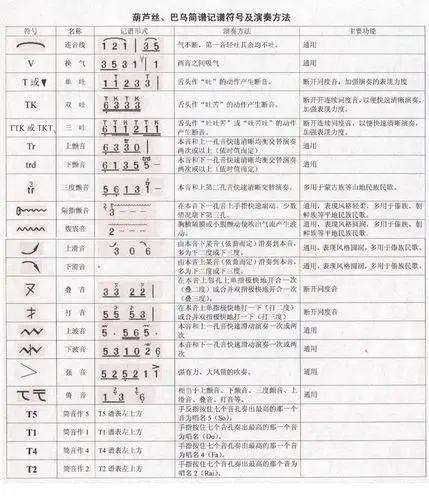 葫芦丝、巴乌简谱记谱符号及演奏方法
符号 名称 记谱形式 演奏方法 主要功能
连音线 1 2 1 | 3 5 气不断，第一音轻吐其余均不吐。 通用
V 换气 3 5 3 1 | 1 两音之间吸气 通用
T或▼ 单吐 1 1 3 3 | 舌头作“吐”的动作产生断音。 断开同度音，加强演奏的表现力度
TK 双吐 6 3 3 3 | 舌头作“吐苦”的动作产生断音。 断开连续同度音，以便快速清晰演奏，
加强表现力度。
TTK 或 TKT 三吐 6 1 1 2 1 1 舌头作“吐吐苦”或“吐苦吐”的动作
产生断音。 断开连续同度音，以便快速清晰演奏，
加强表现力度。
Tr 上颤音 6 3 3 0 | 本音和上一音快速清晰均衡交替演奏
两次或以上（依时值而定） 通用
trd 下颤音 6 1 3 5 5 本音和下一音快速清晰均衡交替演奏
两次或以上（依时值而定） 通用
tr 3 三度颤音 5 6 1 3 1 本音和上第二孔音快速清晰交替演奏。 多用于蒙古族等山地民族民歌。
隔指颤音 2 – – – 在本音下一孔音上手指快速扇动，少数
情况花扇下第三孔。 通用，表现风格轻柔，多用于傣族、朝
鲜族等平地民族民歌。
腹震音 2 – – – 胸横隔膜或小腹颤动使吹出气流产生波
动。 通用，表现风格圆润，多用于傣族、朝
鲜族等平地民族民歌。
上滑音 3 0 6 由本音下某音（依曲而定）滑奏到本音，
多为下二度或下三度。 通用，表现风格圆润，多用于傣族民歌。
下滑音 由本音上某音（依曲而定）滑奏到本音，
多为上二度或上三度。 通用，表现风格圆润，多用于傣族民歌。
又 叠音 3 3 2 2 | 在本音上邻孔上单指极快地开合一次
（叠二度）或合并双指极快地开合一次
（叠三度）。 断开同度音
扌 打音 5 5 5 3 | 在本音上单指极快地打一下（打二度）
或合并双指极快地打一下（打三度） 断开同度音
上波音 5 . 5 6 5 . 本音和上一孔音快速滑动演奏一次或两
次 通用
下波音 5 3 1 0 2 6 本音和下一孔音快速滑动演奏一次或两
次 通用
＞ 强音 5 2 5 2 1 1 强有力、大风量的吹奏。 通用
倚音 1 3 6 相当于上颤音、下颤音、三度颤音、上
滑音、叠音、打音等。 通用
T5 筒音作 5 T5 谱表左上方 手反指按住七个音孔奏出最高的那一个
音为唱名 5（So）。
T1 筒音作 1 T1 谱表左上方 手指按住七个音孔奏出最高的那一个音
为唱名（Do）。
T4 筒音作 4 T4 谱表左上方 手指按住七个音孔奏出最高的那一个音
为唱名 4（Fa）。
T2 筒音作 2 T2 谱表左上方 手指按住七个音孔奏出最高的那一个音为
唱名 2（Rai）。